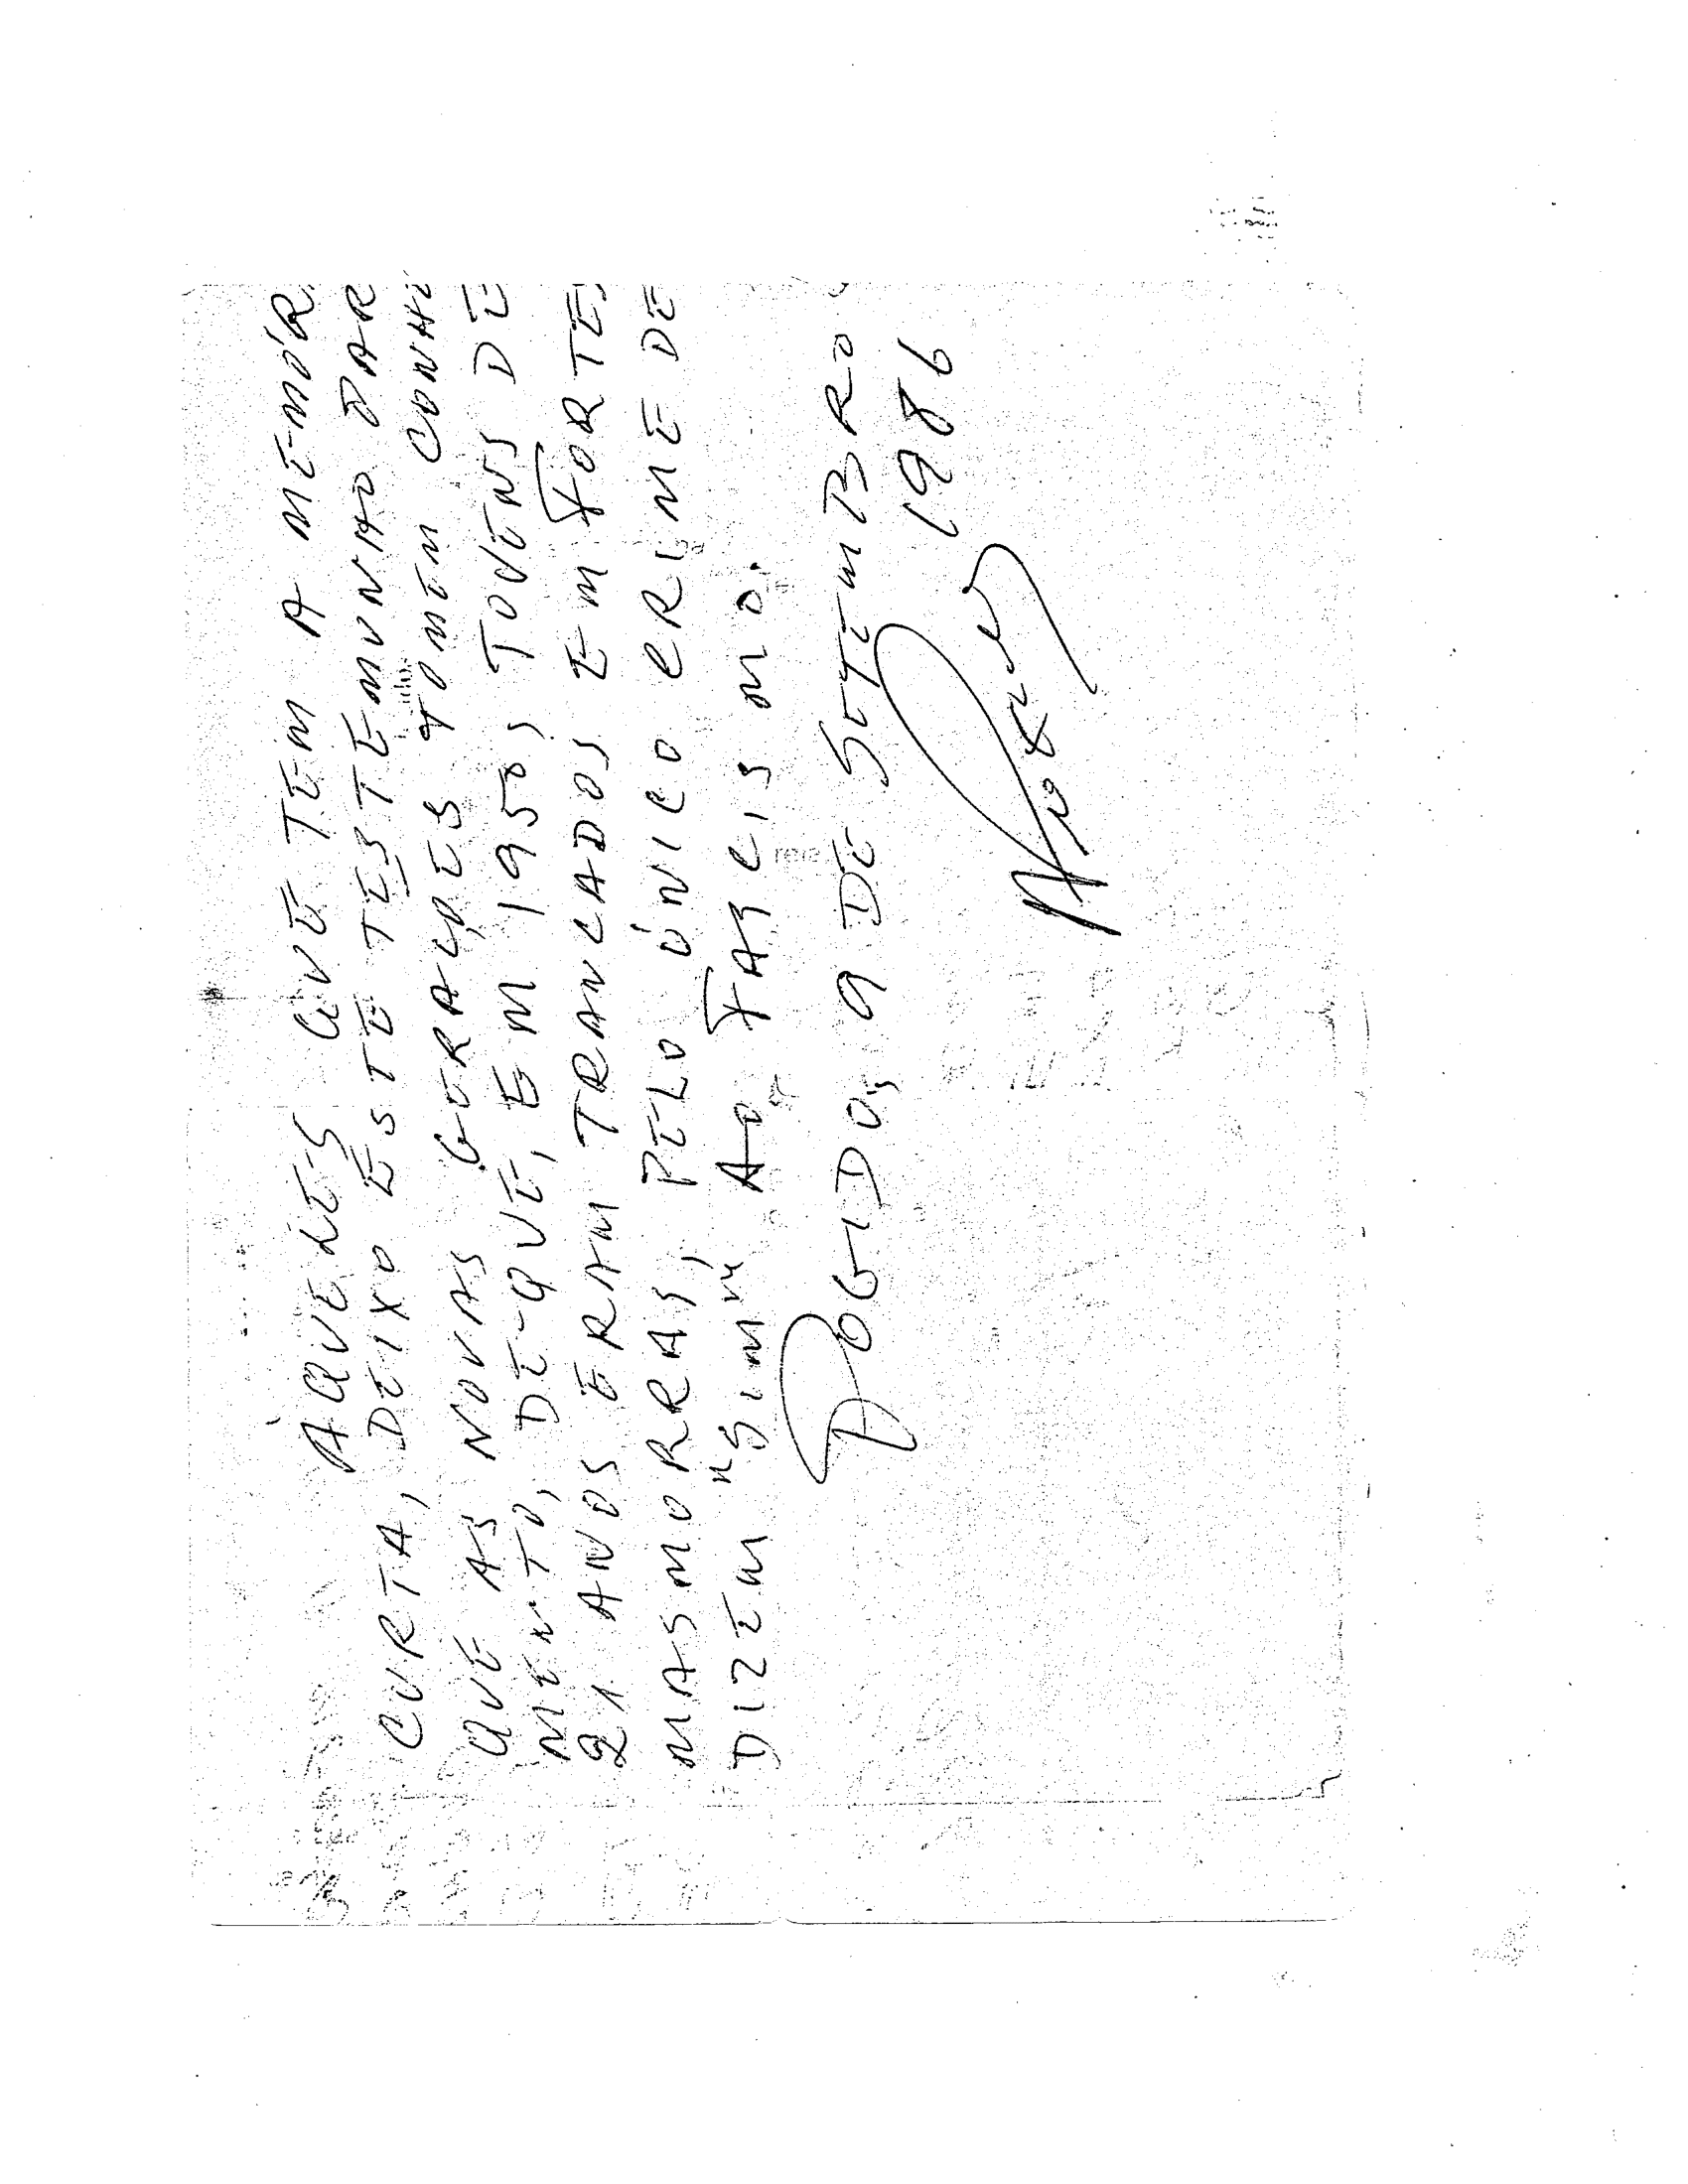 ÀQUELES QUE TEM A MEMÓR
CURTA, DEIXO ESTE TESTEMUNHO PAR
QUE AS NOVAS GERAÇÕES TOMEM CONHE
MENTO, DE-QUE, EM 1950, JOVENS DE
21 ANOS ERAM TRANCADOS EM FORTES,
MASMORRAS, PELO ÚNICO CRIME DE
DIZEM "SIM" AO FASCISMO.
FOGIDO, 9 DE SETEMBRO
1986